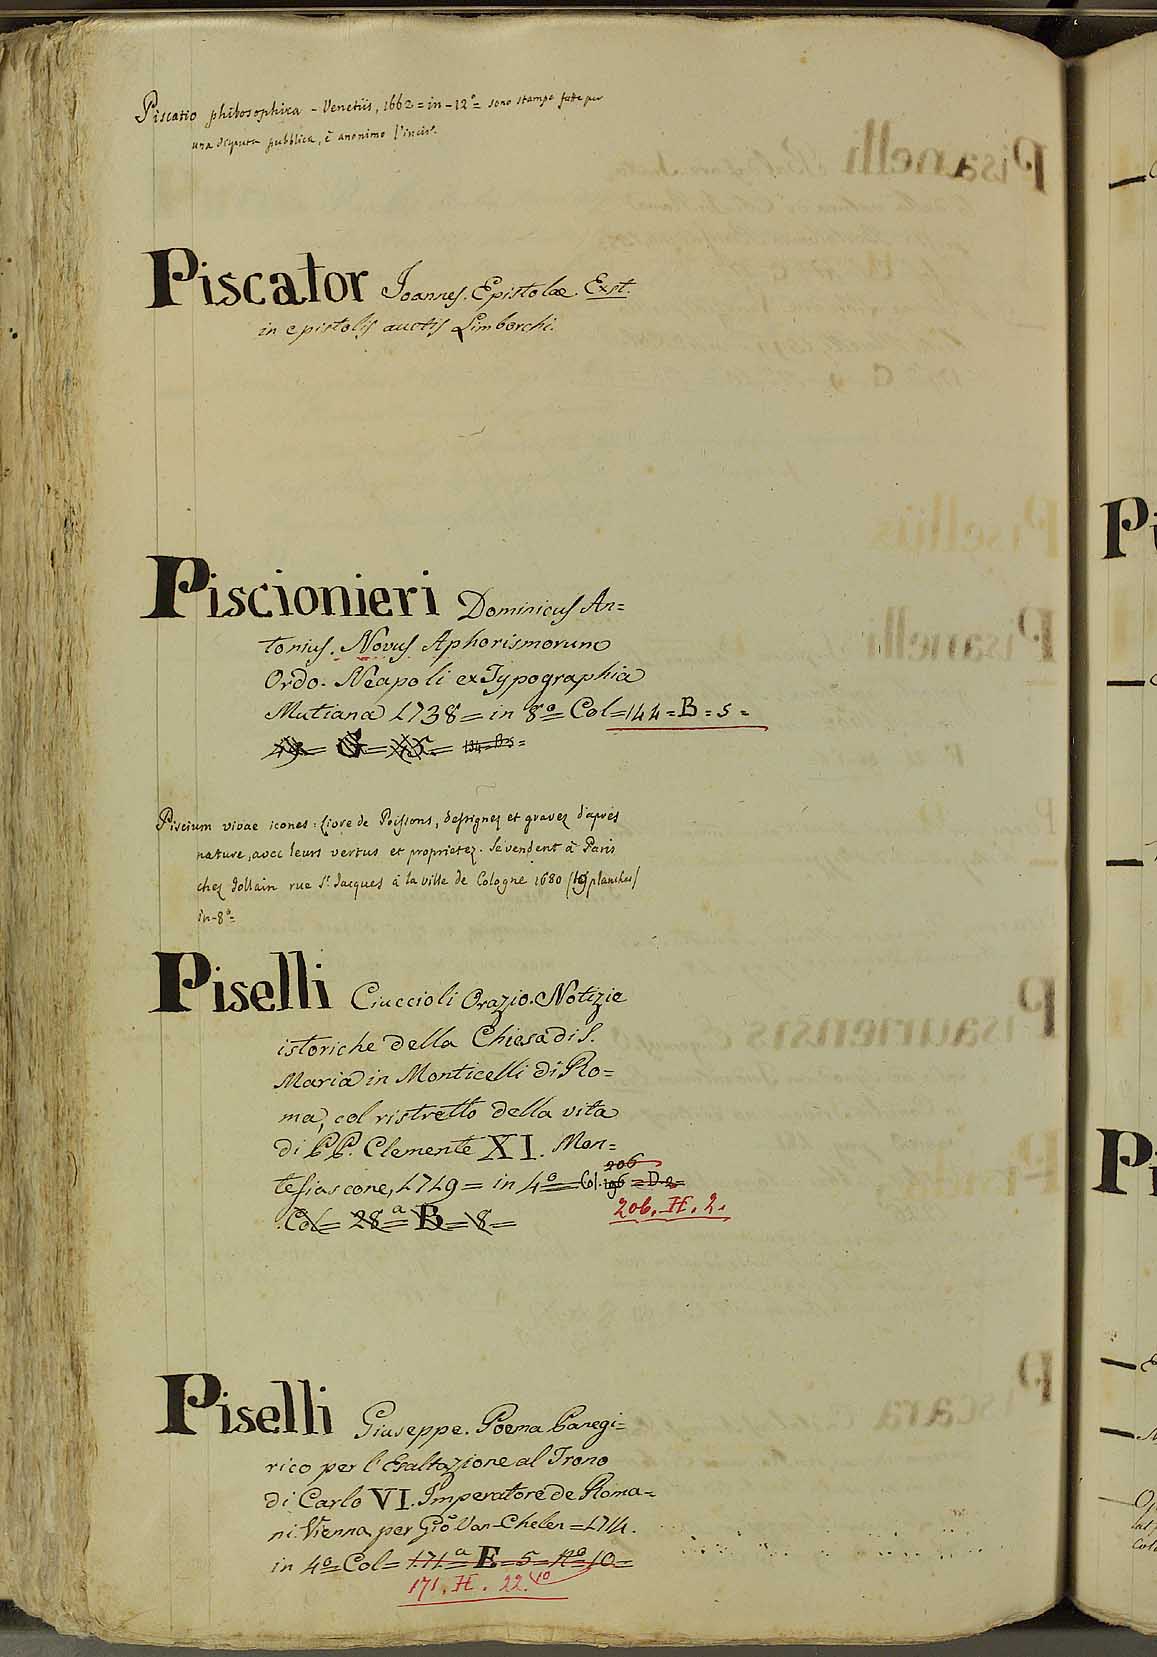 Piscatio philosophica - Venetiis, 1662 = in-12º = sono stampe fatte per
una disputa pubblica, è anonimo l'incis.
Piscator Joannes. Epistolæ. Exst.
in epistolis auctis Limborchi.
Piscionieri Dominicus An=
tonius. Novus Aphorismorum
Ordo. Neapoli ex Typographia
Mutiana 1738 = in 8º Col = 144 = B = 5 =
Piscium vivae icones: Livre de Poissons, dessignez et gravez d'après
nature, avec leurs vertus et proprietez. Se vendent à Paris
chez Jollain rue St. Jacques à la ville de Cologne 1680 (19 planches)
in-8º =
Piselli Ciuccioli Orazio. Notizie
istoriche della Chiesa di S.
Maria in Monticelli di Ro=
ma, col ristretto della vita
di PP. Clemente XI. Mon=
206
tefiascone, 1719 = in 4º = Col. 196 = D. 2 =
206. H. 2.
Col = 28ª = B = 8 =
Piselli Giuseppe. Poema Panegi=
rico per l'Esaltazione al Trono
di Carlo VI. Imperatore de Roma=
ni. Vienna per Gio Van-Ghelen = 1714.
in 4º Col = 171ª E = 5 = Nº 10 =
171. H. 22. 10
Pi
Pi